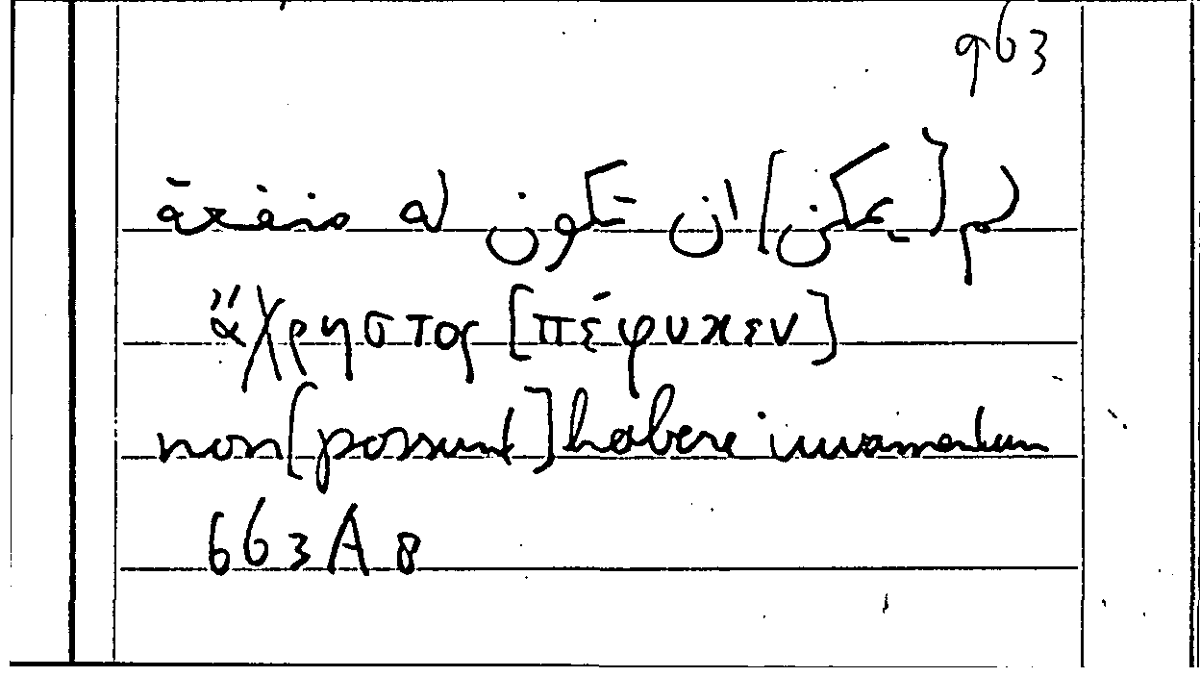 φ63
لم [يمكن] ان تكون له منفعة
ἄχρηστος [πέφυκεν]
non [possunt] habere iuvamentum
663A8